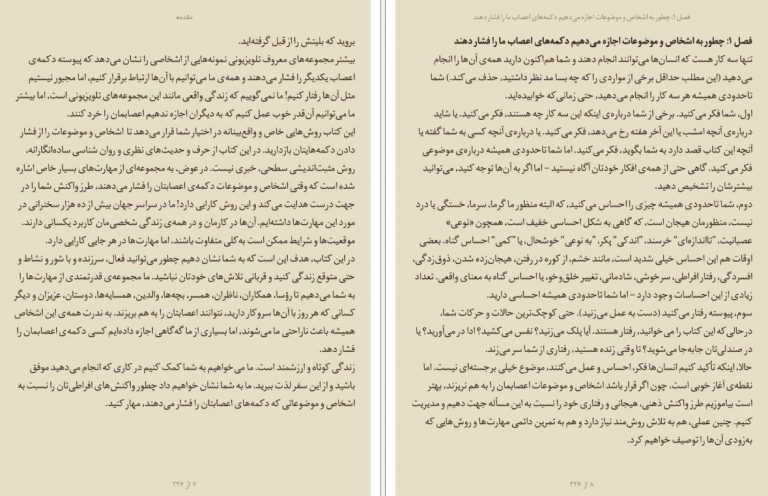 مقدمه
بروید که بلیتش را از قبل گرفته‌اید.
بیشتر مجموعه‌های معروف تلویزیونی نمونه‌هایی از اشخاصی را نشان می‌دهد که پیوسته دکمه‌ی
اعصاب یکدیگر را فشار می‌دهند و همه‌ی ما می‌توانیم با آن‌ها ارتباط برقرار کنیم، اما مجبور نیستیم
مثل آن‌ها رفتار کنیم! ما نمی‌گوییم که زندگی واقعی مانند این مجموعه‌های تلویزیونی است، اما بیشتر
ما می‌توانیم آن‌قدر خوب عمل کنیم که به دیگران اجازه ندهیم اعصابمان را خرد کنند.
این کتاب روش‌هایی خاص و واقع‌بینانه در اختیار شما قرار می‌دهد تا اشخاص و موضوعات را از فشار
دادن دکمه‌هایتان بازدارید. در این کتاب از حرف و حدیث‌های نظری و روان شناسی ساده‌انگارانه،
روش مثبت‌اندیشی سطحی، خبری نیست. در عوض، به مجموعه‌ای از مهارت‌های بسیار خاص اشاره
شده است که وقتی اشخاص و موضوعات دکمه‌ی اعصابتان را فشار می‌دهند، طرز واکنش شما را در
جهت درست هدایت می‌کند و این روش کارایی دارد! ما در سراسر جهان بیش از ده هزار سخنرانی در
مورد این مهارت‌ها داشته‌ایم. آن‌ها در کارمان و در همه‌ی زندگی شخصی‌مان کاربرد یکسانی دارند.
موقعیت‌ها و شرایط ممکن است به کلی متفاوت باشند، اما مهارت‌ها در هر جایی کارایی دارد.
در این کتاب، هدف این است که به شما نشان دهیم چطور می‌توانید فعال، سرزنده و با شور و نشاط و
حتی متوقع زندگی کنید و قربانی تلاش‌های خودتان نباشید. ما مجموعه‌ی قدرتمندی از مهارت‌ها را
به شما می‌دهیم تا رؤسا، همکاران، ناظران، همسر، بچه‌ها، والدین، همسایه‌ها، دوستان، عزیزان و دیگر
کسانی که هر روز با آن‌ها سروکار دارید، نتوانند اعصابتان را به هم بریزند. به ندرت همه‌ی این اشخاص
همیشه باعث ناراحتی ما می‌شوند، اما بسیاری از ما گه‌گاهی اجازه داده‌ایم کسی دکمه‌ی اعصابمان را
فشار دهد.
زندگی کوتاه و ارزشمند است. ما می‌خواهیم به شما کمک کنیم در کاری که انجام می‌دهید موفق
باشید و از این سفر لذت ببرید. ما به شما نشان خواهیم داد چطور واکنش‌های افراطی‌تان را نسبت به
اشخاص و موضوعاتی که دکمه‌های اعصابتان را فشار می‌دهند، مهار کنید.
۷ از ۲۲۶
فصل ۱: چطور به اشخاص و موضوعات اجازه می‌دهیم دکمه‌های اعصاب ما را فشار دهند
فصل ۱: چطور به اشخاص و موضوعات اجازه می‌دهیم دکمه‌های اعصاب ما را فشار دهند
تنها سه کار هست که انسان‌ها می‌توانند انجام دهند و شما هم‌اکنون دارید همه‌ی آن‌ها را انجام
می‌دهید (این مطلب حداقل برخی از مواردی را که چه بسا مد نظر داشتید، حذف می‌کند.) شما
تاحدودی همیشه هر سه کار را انجام می‌دهید، حتی زمانی که خوابیده‌اید.
اول، شما فکر می‌کنید. برخی از شما درباره‌ی اینکه این سه کار چه هستند، فکر می‌کنید. یا شاید
درباره‌ی آنچه امشب یا این آخر هفته رخ می‌دهد، فکر می‌کنید. یا درباره‌ی آنچه کسی به شما گفته یا
آنچه این کتاب قصد دارد به شما بگوید، فکر می‌کنید. اما شما تاحدودی همیشه درباره‌ی موضوعی
فکر می‌کنید. گاهی حتی از همه‌ی افکار خودتان آگاه نیستید - اما اگر به آن‌ها توجه کنید، می‌توانید
بیشترشان را تشخیص دهید.
دوم، شما تاحدودی همیشه چیزی را احساس می‌کنید، که البته منظور ما گرما، سرما، خستگی یا درد
نیست. منظورمان هیجان است، که گاهی به شکل احساسی خفیف است، همچون «نوعی»
عصبانیت، "تااندازه‌ای" خرسند، "اندکی" پکر، "به نوعی" خوشحال، یا "کمی" احساس گناه. بعضی
اوقات هم این احساس خیلی شدید است، مانند خشم، از کوره در رفتن، هیجان‌زده شدن، ذوق‌زدگی،
افسردگی، رفتار افراطی، سرخوشی، شادمانی، تغییر خلق‌وخو، یا احساس گناه به معنای واقعی. تعداد
زیادی از این احساسات وجود دارد - اما شما تاحدودی همیشه احساسی دارید.
سوم، پیوسته رفتار می‌کنید (دست به عمل می‌زنید). حتی کوچک‌ترین حالات و حرکات شما،
درحالی‌که این کتاب را می‌خوانید، رفتار هستند. آیا پلک می‌زنید؟ نفس می‌کشید؟ ادا در می‌آورید؟ یا
در صندلی‌تان جابه‌جا می‌شوید؟ تا وقتی زنده هستید، رفتاری از شما سر می‌زند.
حالا، اینکه تأکید کنیم انسان‌ها فکر، احساس و عمل می‌کنند، موضوع خیلی برجسته‌ای نیست. اما
نقطه‌ی آغاز خوبی است، چون اگر قرار باشد اشخاص و موضوعات اعصابمان را به هم نریزند، بهتر
است بیاموزیم طرز واکنش ذهنی، هیجانی و رفتاری خود را نسبت به این مسأله جهت دهیم و مدیریت
کنیم. چنین عملی، هم به تلاش روش‌مند نیاز دارد و هم به تمرین دائمی مهارت‌ها و روش‌هایی که
به‌زودی آن‌ها را توصیف خواهیم کرد.
۸ از ۲۲۶